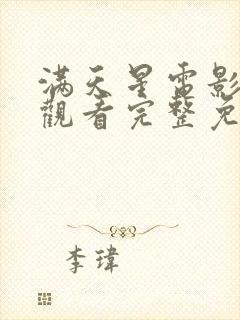 满天星電影
觀看完整免
李瑋